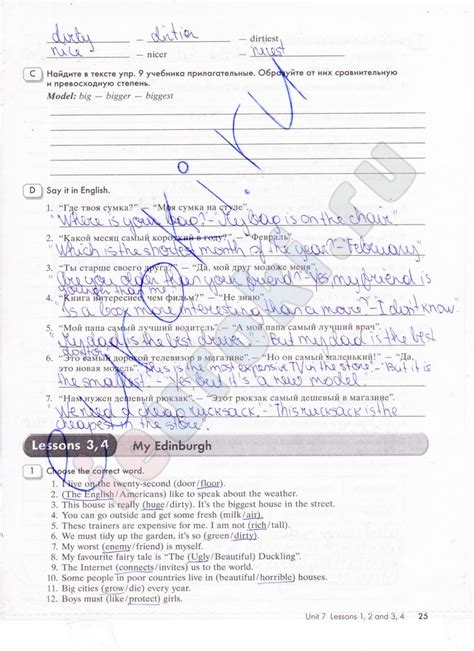 dirty – dirtier – dirtiest
nice – nicer – nicest
C Найдите в тексте упр. 9 учебника прилагательные. Образуйте от них сравнительную
и превосходную степень.
Model: big — bigger — biggest
D Say it in English.
1. “Где твоя сумка?” — “Моя сумка на стуле”.
"Where is your bag?" - "My bag is on the chair"
2. “Какой месяц самый короткий в году?” — “Февраль”.
"Which is the shortest month of the year? - February"
3. “Ты старше своего друга?” — “Да, мой друг моложе меня”
"Are you older than your friend" - Yes my friend is
younger than me"
4. “Книга интереснее, чем фильм?” — “Не знаю”.
"Is a book more interesting than a movie? - I don't know"
5. “Мой папа самый лучший водитель”. — “А мой папа самый лучший врач”.
"My dad is the best driver" "But my dad is the best
doctor"
6. “Это самый дорогой телевизор в магазине”. — “Но он самый маленький!” — “Да,
это новая модель”. "This is the most expensive TV in the store" - But it is
the smallest" - "Yes but it's a new model"
7. “Нам нужен дешёвый рюкзак”. — “Этот рюкзак самый дешевый в магазине”.
"We need a cheap rucksack" - "This rucksack is the
cheapest in the store"
Lessons 3, 4 My Edinburgh
1 Choose the correct word.
1. I live on the twenty-second (door/floor).
2. (The English/Americans) like to speak about the weather.
3. This house is really (huge/dirty). It's the biggest house in the street.
4. You can go outside and get some fresh (milk/air).
5. These trainers are expensive for me. I am not (rich/tall).
6. We must tidy up the garden, it's so (green/dirty).
7. My worst (enemy/friend) is myself.
8. My favourite fairy tale is “The (Ugly/Beautiful) Duckling”.
9. The Internet (connects/invites) us to the world.
10. Some people in poor countries live in (beautiful/horrible) houses.
11. Big cities (grow/die) every year.
12. Boys must (like/protect) girls.
Unit 7 Lessons 1, 2 and 3, 4 25